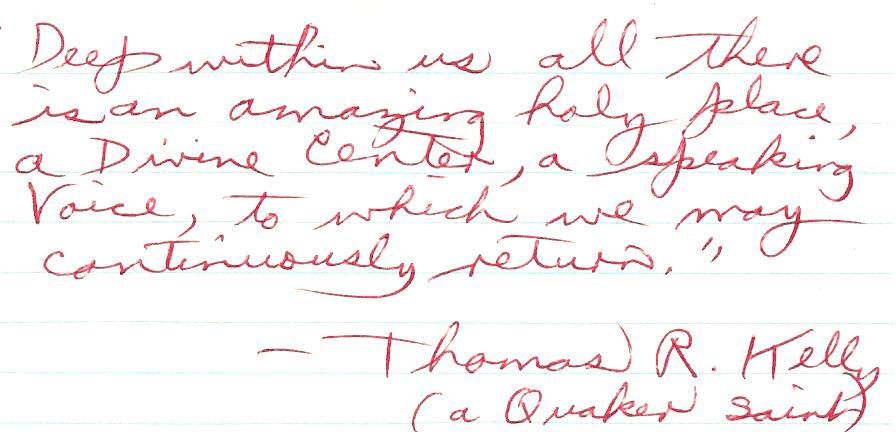 Deep within us all there
is an amazing holy place,
a Divine Center, a speaking
Voice, to which we may
continuously return."
— Thomas R. Kelly
(a Quaker saint)